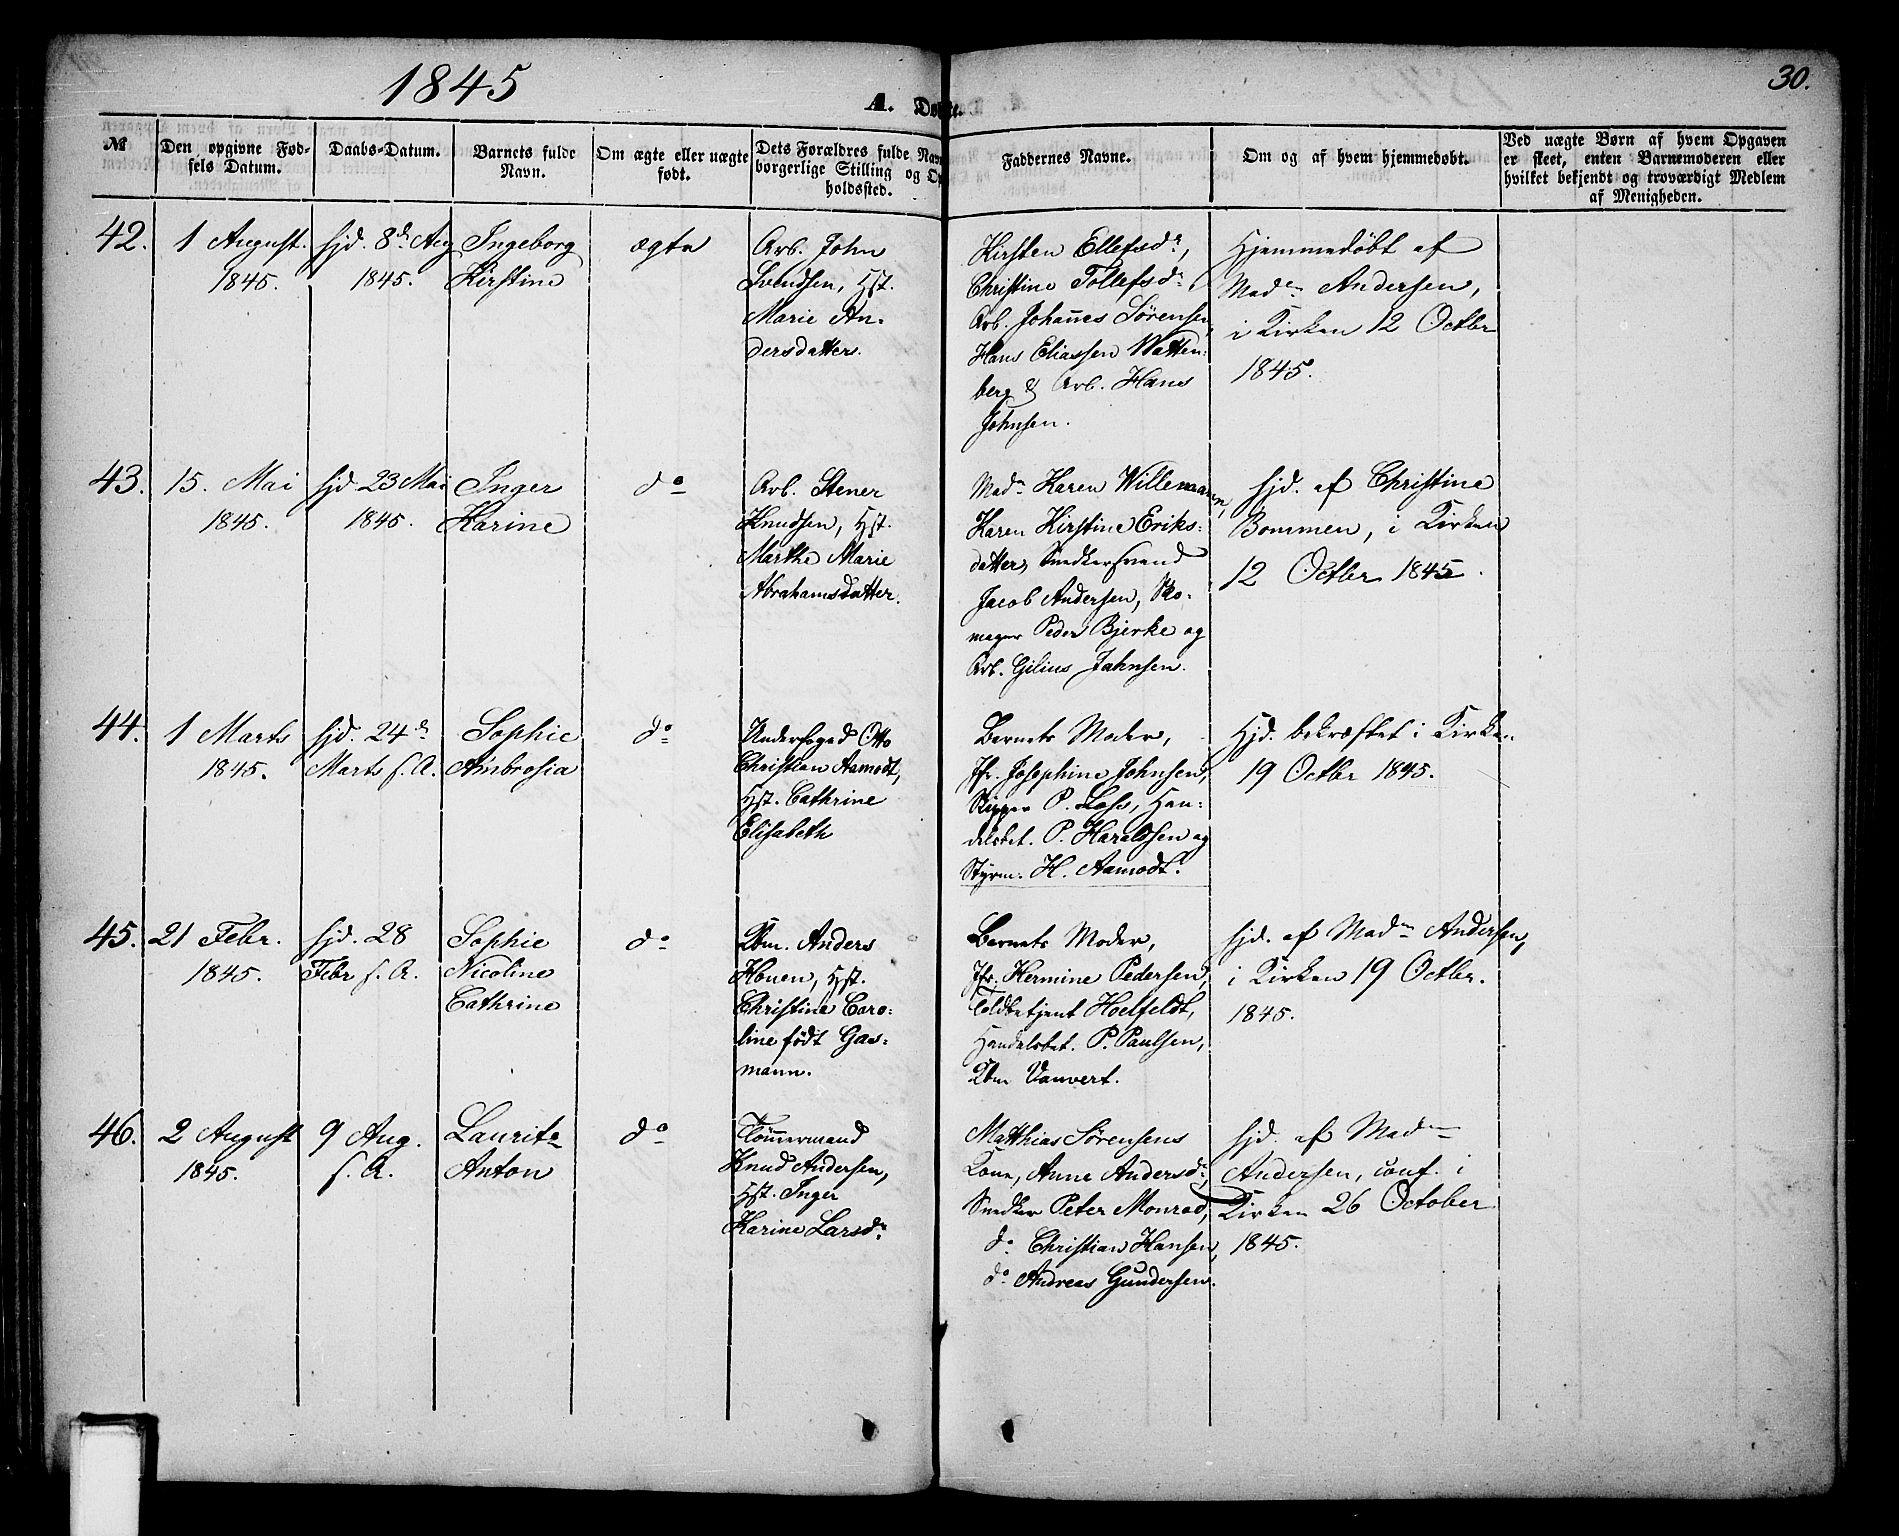 1845
A. Døbte.
30.
№
Den opgivne Fød-
sels Datum.
Daabs-Datum.
Barnets fulde
Navn.
Om ægte eller uægte
født.
Dets Forældres fulde Nav
borgerlige Stilling og Op
holdssted.
Faddernes Navne.
Om og af hvem hjemmedøbt.
Ved uægte Børn af hvem Opgaven
er skeet, enten Barnemoderen eller
hvilket bekjendt og troværdigt Medlem
af Menigheden.
42.
1 August.
1845.
hjd. 8de Aug
1845.
Ingeborg
Kirstine
ægte
Arb. John
Svendsen, Hst.
Marie An-
dersdatter.
Kirsten Ellefsdr,
Christine Tollefsdr
Arb. Johannes Sörensen,
Hans Eliassen Watten-
berg & Arb. Hans
Johnsen.
Hjemmedöbt af
Madm Andersen,
i Kirken 12 Octbr
1845.
43.
15. Mai
1845.
hjd. 23 Mai
1845.
Inger
Karine
do
Arb. Stener
Knudsen, Hst.
Marthe Marie
Abrahamsdatter.
Madm Karen Willemann,
Karen Kirstine Eriks-
datter, Snedkersvend
Jacob Andersen, Sko-
mager Peder Bjerke og
Arb. Gilius Jahnsen.
hjd. af Christine
Bommen, i Kirken
12 Octbr 1845.
44.
1 Marts
1845.
hjd. 24de
Marts s. A.
Sophie
Ambrosia
do
Underfoged Otto
Christian Aamodt,
Hst. Cathrine
Elisabeth
Barnets Moder,
Jfr. Josephine Johnsen,
Skipper P. Loss, Han-
delsbet. P. Haraldsen og
Styrm. H. Aamodt.
Hjd. bekræftet i Kirken
19 Octbr 1845.
45.
21 Febr.
1845.
hjd. 28
Febr s. A.
Sophie
Nicoline
Cathrine
do
Kbm. Anders
Houen, Hst.
Christine Caro-
line födt Gas-
mann.
Barnets Moder,
Jfr. Hermine Pedersen,
Toldbetjent Hoelfeldt,
Handelsbet. P. Paulsen,
Kbm Vauvert.
hjd. af Madm Andersen,
i Kirken 19 Octbr.
1845.
46.
2 August
1845.
9 Aug.
s. A.
Lauritz
Anton
do
Tömmermand
Knud Andersen,
Hst. Inger
Karine Larsdr
Matthias Sörensens
Kone, Anne Andersdr,
Snedker Peter Monrad,
do Christian Hansen,
do Andreas Gundersen.
hjd. af Madm
Andersen, conf. i
Kirken 26 October
1845.